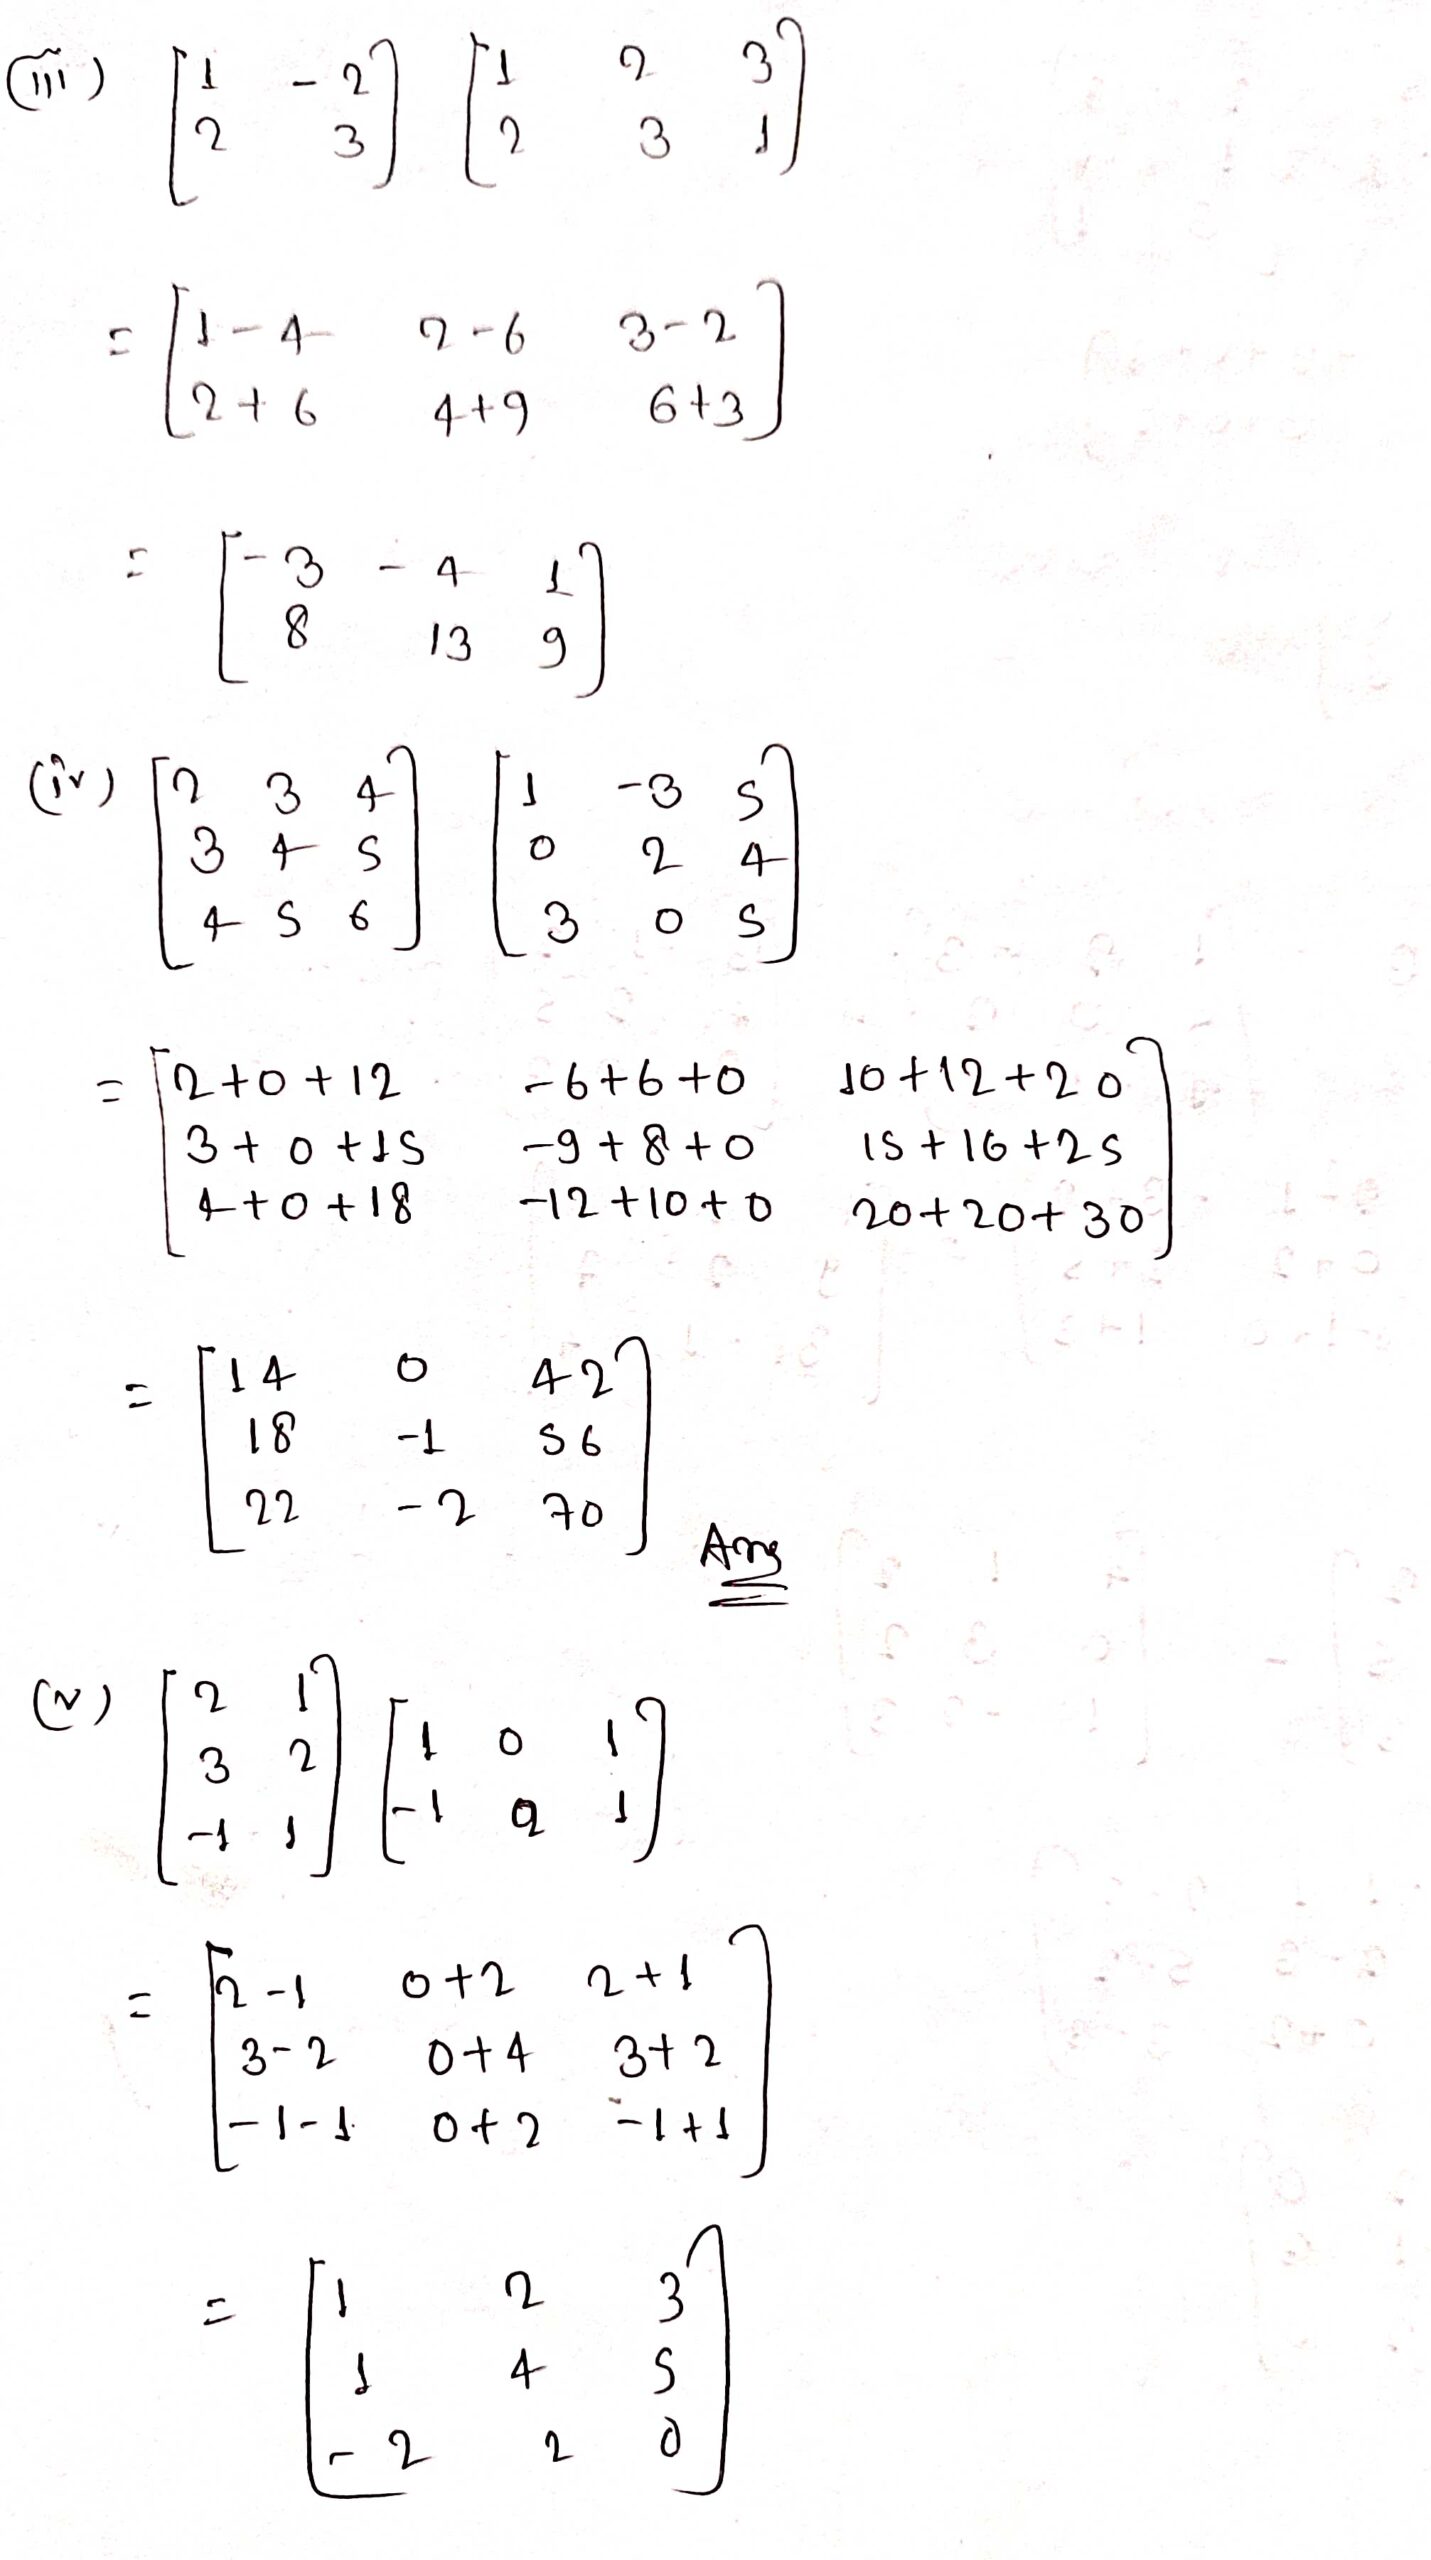 (iii) [1 -2] [1 2 3]
[2 3] [2 3 1]
= [1-4 2-6 3-2]
[2+6 4+9 6+3]
= [-3 -4 1]
[8 13 9]
(iv) [2 3 4] [1 -3 5]
[3 4 5] [0 2 4]
[4 5 6] [3 0 5]
= [2+0+12 -6+6+0 10+12+20]
[3+0+15 -9+8+0 15+16+25]
[4+0+18 -12+10+0 20+20+30]
= [14 0 42]
[18 -1 56]
[22 -2 70]
Ans
(v) [2 1] [1 0 1]
[3 2] [-1 2 1]
[-1 1]
= [2-1 0+2 2+1]
[3-2 0+4 3+2]
[-1-1 0+2 -1+1]
= [1 2 3]
[1 4 5]
[-2 2 0]